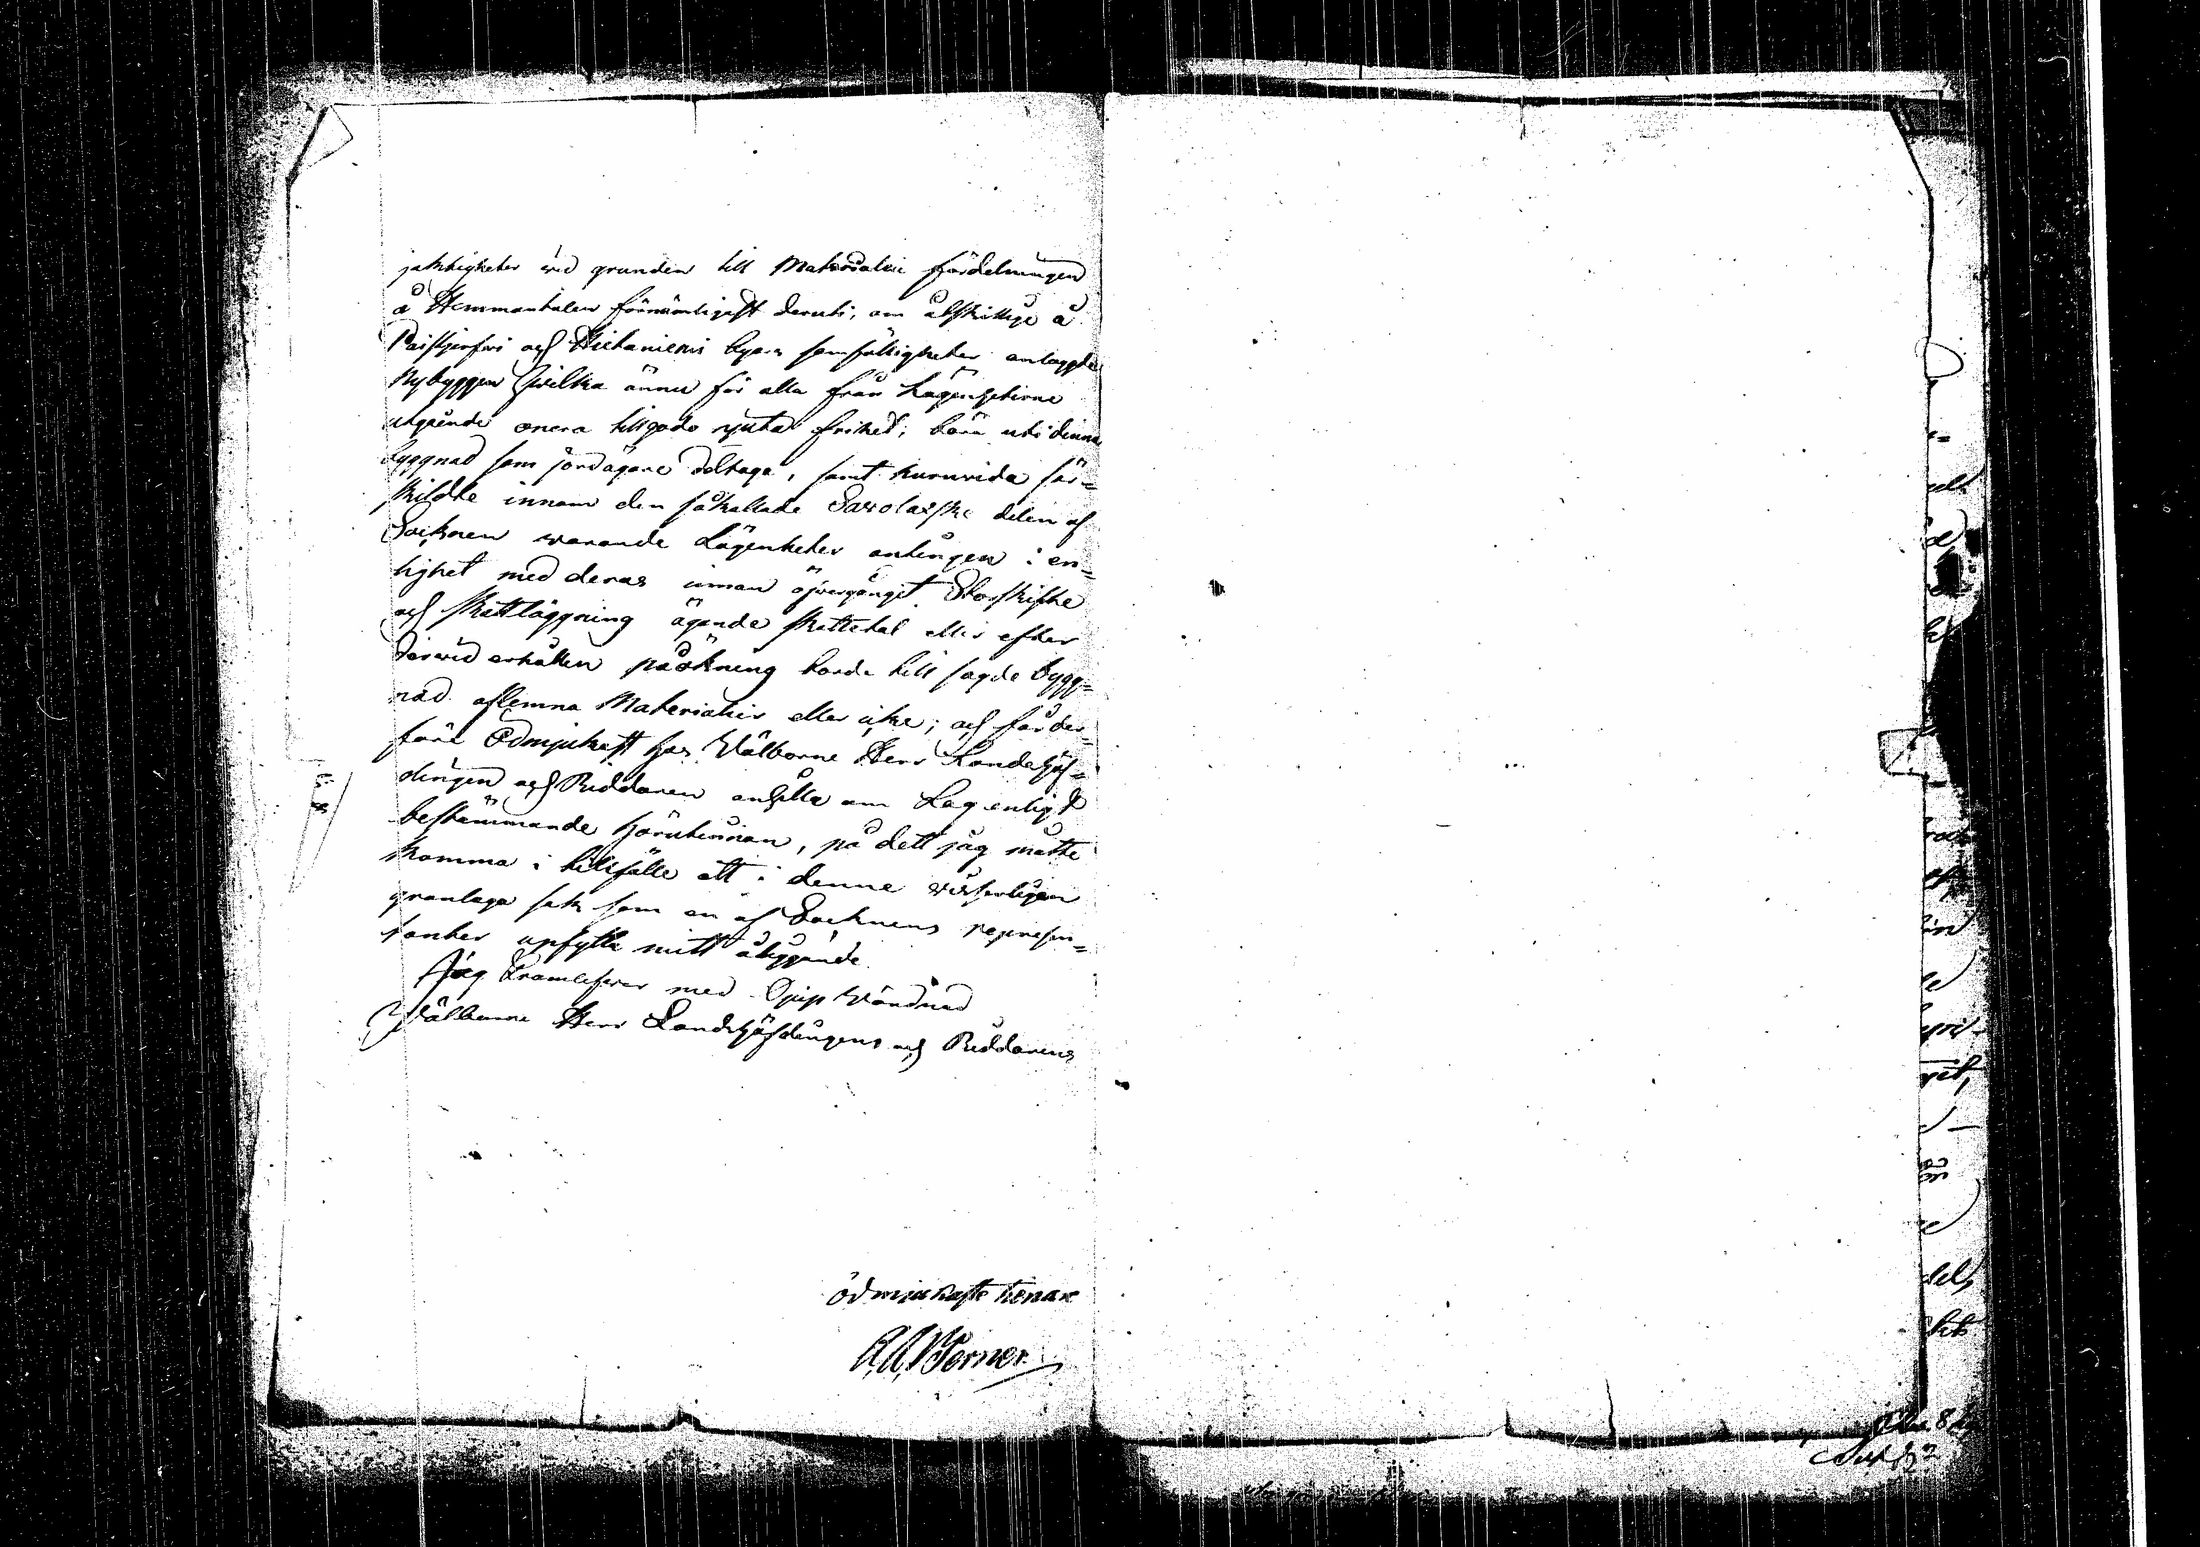 jaktigheter wid grunden till Materialie fördelningen
å Hemmantalen förnämligast deruti, om åtskillige å
Paistjerfwi och Hietaniemi byars samfälligheter anlaggde
Nybyggen hwilka ännu för alla från Lägenheterne
utgående onera tillgodo njuta frihet, böra uti denna
byggnad som jordägare deltaga, samt huruvida sär-
skildte innom den såkallade Sawolaxske delen af
Socknen warande Lägenheter antingen i en-
lighet med deras innan öfvergånget Storskifte
och Skattläggning ägande Skattetal eller efter
derwid erhållen påökning borde till sagde bygg-
nad aflemna Materialier eller icke; och får der-
före Ödmjukast hos Välborne Herr Landshöf-
dingen och Riddaren anhålla om Lagenligt
bestämmande härutinnan, på dett jag måtte
komma i tillfälle att i denne wisserligen
granlaga sak som en af Socknens represen-
tanter upfylla mitt åliggande.
Jag framlefwer med Djup Wördnad
Välborne Herr Landshöfdingens och Riddarens
ödmjukaste tienare
A. A. Werner.